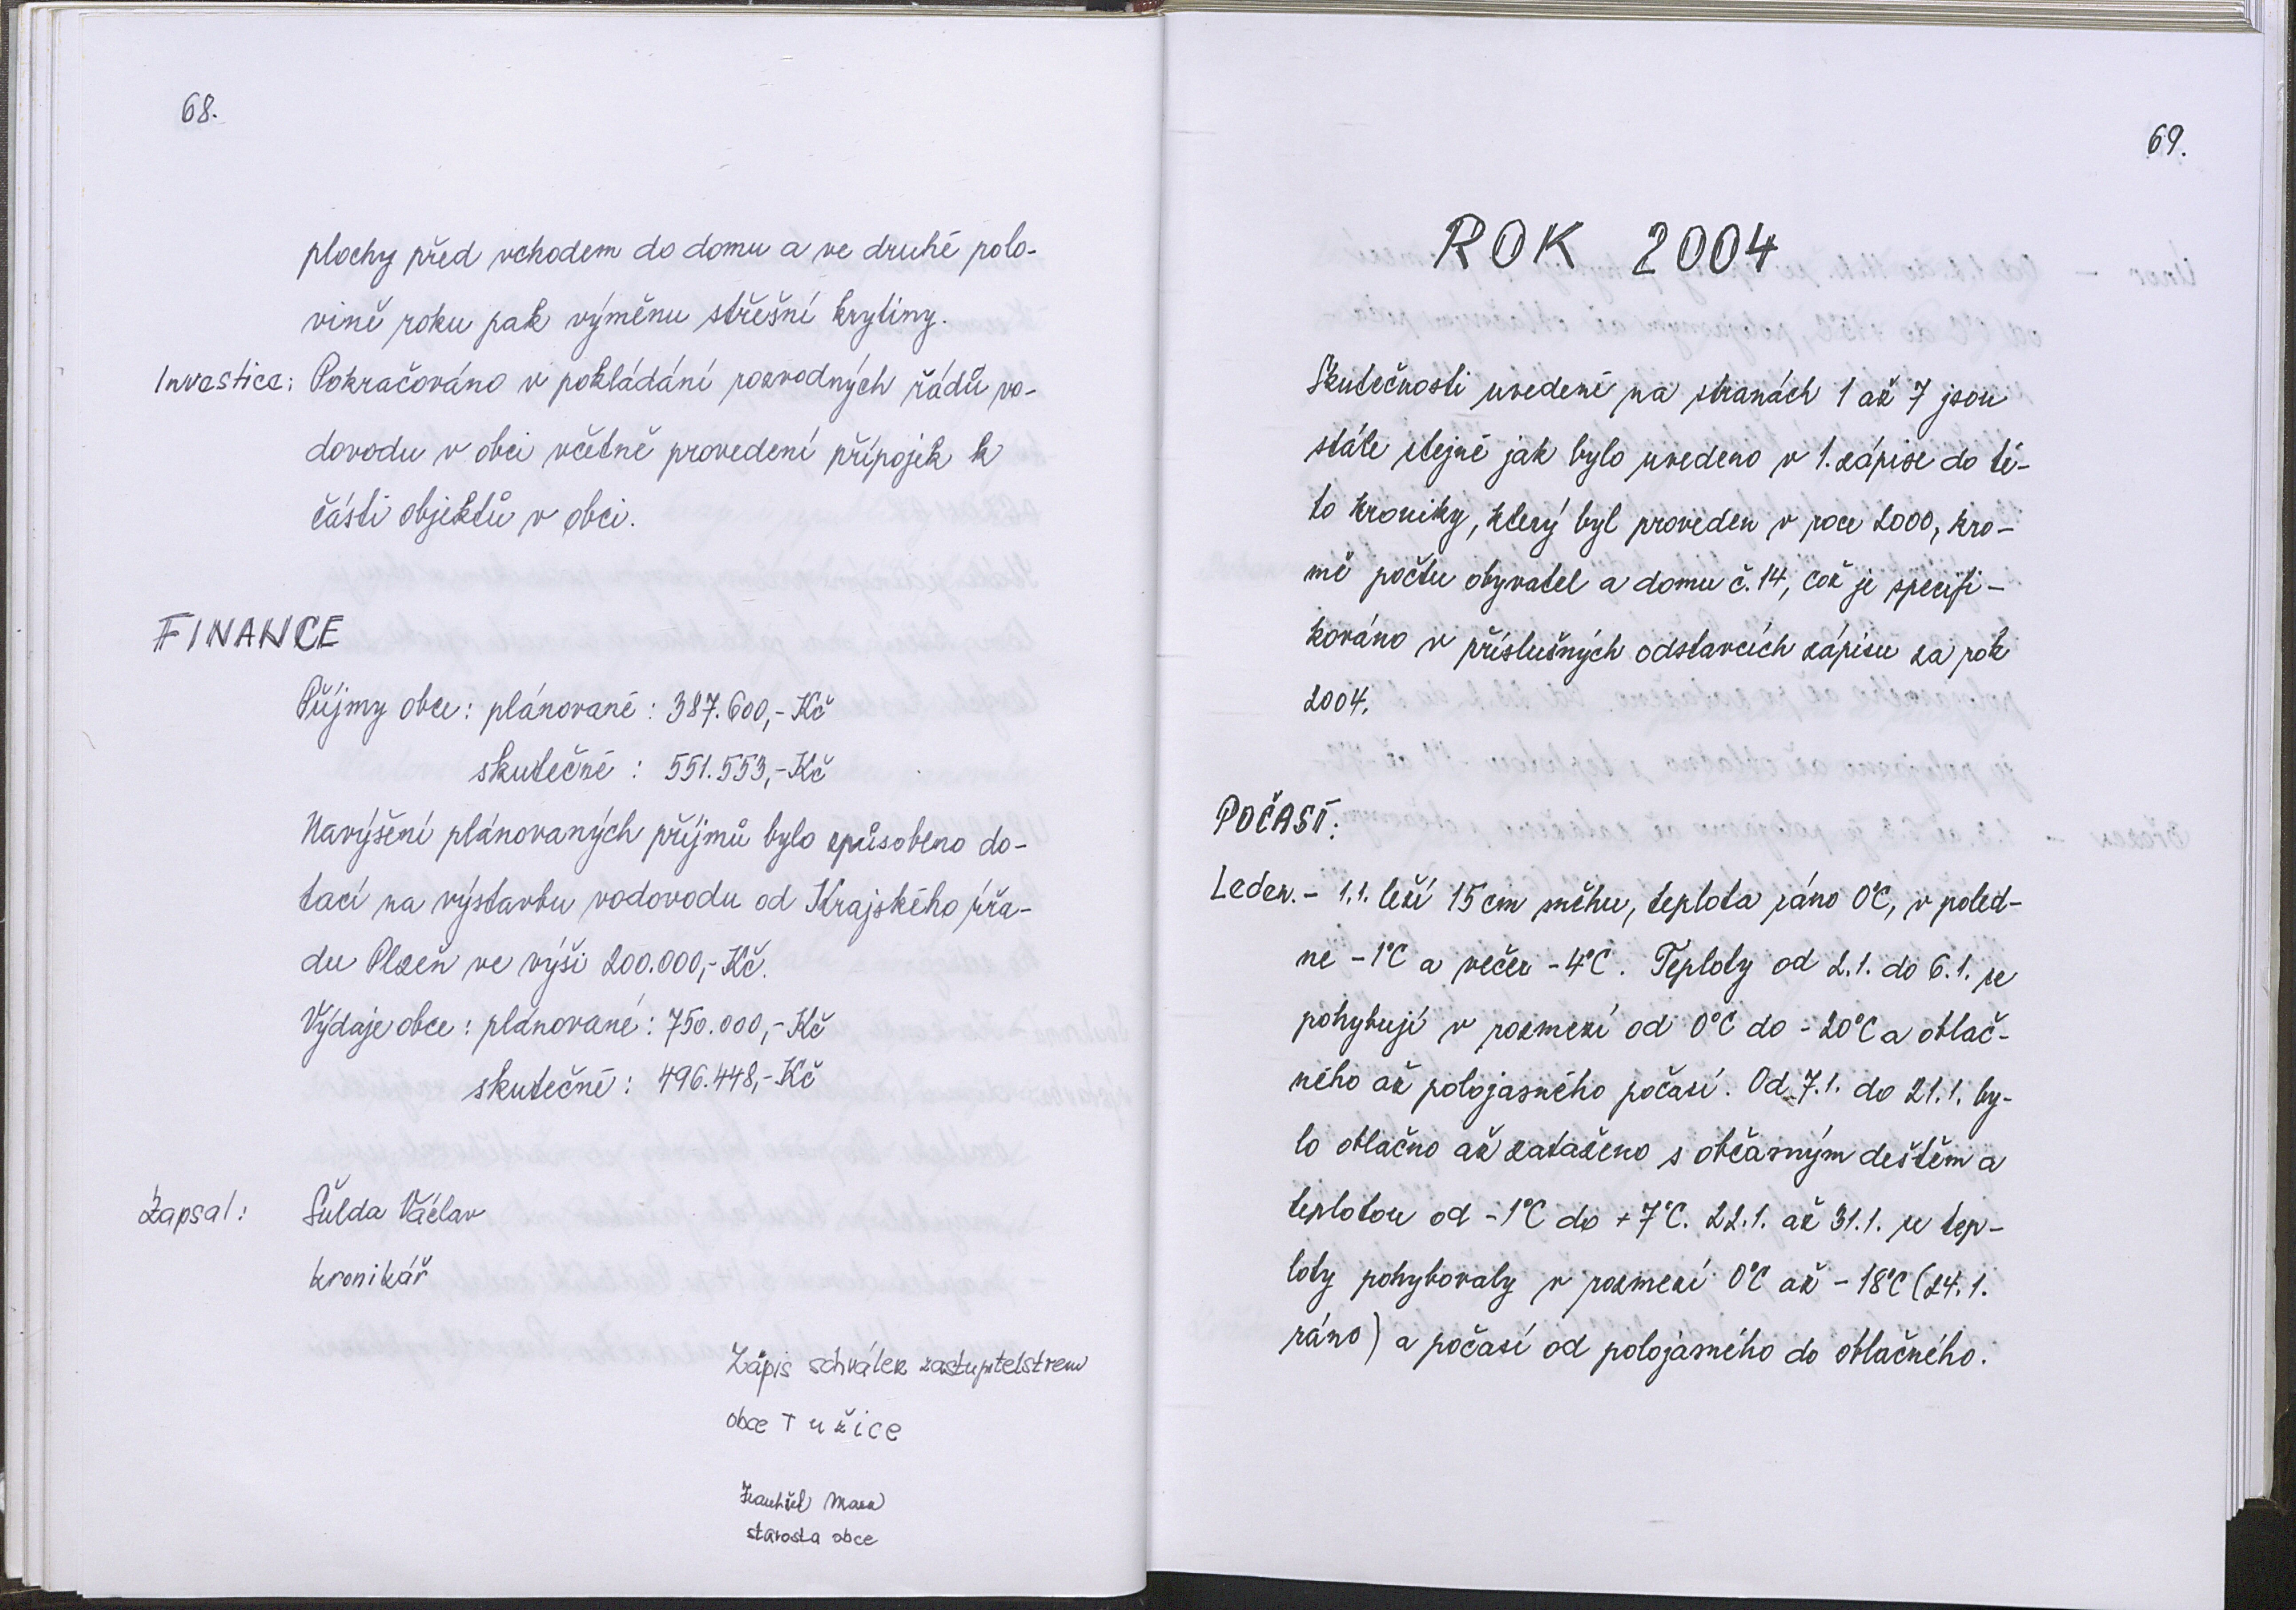 68.
plochy před vchodem do domu a ve druhé polo-
vině roku pak výměnu střešní krytiny.
Investice: Pokračováno v pokládání rozvodných řádů vo-
dovodu v obci včetně provedení přípojek k
části objektů v obci.
FINANCE
Příjmy obce: plánované: 387.600,- Kč
skutečné: 551.553,- Kč
Navýšení plánovaných příjmů bylo způsobeno do-
tací na výstavbu vodovodu od Krajského úřa-
du Plzeň ve výši 200.000,- Kč.
Výdaje obce: plánované: 750.000,- Kč
skutečné: 496.448,- Kč
Zapsal: Šulda Václav
kronikář
Zápis schválen zastupitelstvem
obce Tužice
starosta obce
69.
ROK 2004
Skutečnosti uvedené na stranách 1 až 7 jsou
stále stejné jak bylo uvedeno v 1. zápise do té-
to kroniky, který byl proveden v roce 2000, kro-
mě počtu obyvatel a domu č. 14, což je specifi-
kováno v příslušných odstavcích zápisu za rok
2004.
POČASÍ:
Leden. - 1.1. leží 15 cm sněhu, teplota ráno 0°C, v poled-
ne -1°C a večer -4°C. Teploty od 2.1. do 6.1. se
pohybují v rozmezí od 0°C do -20°C a oblač-
ného až polojasného počasí. Od 7.1. do 21.1. by-
lo oblačno až zataženo s občasným deštěm a
teplotou od -1°C do +7°C. 22.1. až 31.1. se tep-
loty pohybovaly v rozmezí 0°C až -18°C (24.1.
ráno) a počasí od polojasného do oblačného.